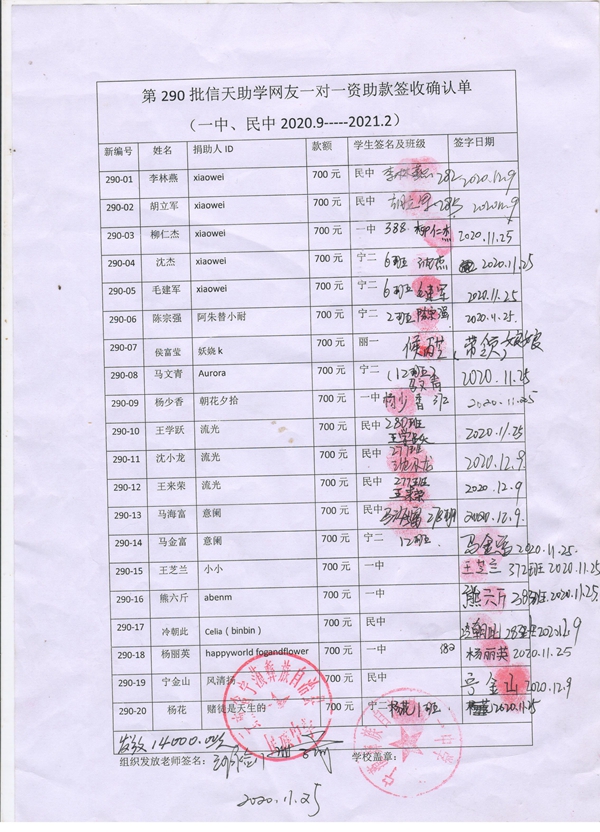 第 290 批信天助学网友一对一资助款签收确认单
（一中、民中 2020.9-----2021.2）
新编号 姓名 捐助人 ID 款额 学生签名及班级 签字日期
290-01 李林燕 xiaowei 700 元 民中 李林燕 282 2020.12.9
290-02 胡立军 xiaowei 700 元 民中 285
290-03 柳仁杰 xiaowei 700 元 一中 388 柳仁杰 2020.11.25
290-04 沈杰 xiaowei 700 元 宁二 6班 沈杰 2020.11.25
290-05 毛建军 xiaowei 700 元 宁二 6班 毛建军 2020.11.25
290-06 陈宗强 阿朱替小耐 700 元 宁二 2班 陈宗强
290-07 侯富莹 妖娆 k 700 元 丽一
290-08 马文青 Aurora 700 元 宁二 (12班) 马文青 2020.11.25
290-09 杨少香 朝花夕拾 700 元 一中 杨少香 372 2020.11.25
290-10 王学跃 流光 700 元 民中 280班 王学跃 2020.11.25
290-11 沈小龙 流光 700 元 民中 277班 沈小龙 2020.12.9
290-12 王来荣 流光 700 元 民中 277班 王来荣 2020.12.9
290-13 马海富 意阑 700 元 民中 2020.12.9
290-14 马金富 意阑 700 元 宁二 12班 马金富 2020.11.25
290-15 王芝兰 小小 700 元 一中 王芝兰 372班 2020.11.25
290-16 熊六斤 abenm 700 元 一中 熊六斤 2020.11.25
290-17 冷朝此 Celia（binbin） 700 元 民中 冷朝此
290-18 杨丽英 happyworld fogandflower 700 元 一中 杨丽英 2020.11.25
290-19 宁金山 风清扬 700 元 宁金山 2020.12.9
290-20 杨花 赌徒是天生的 700 元 宁二 杨花 1班 2020.11.25
发放 14000.00
组织发放老师签名： 学校盖章：
2020.11.25